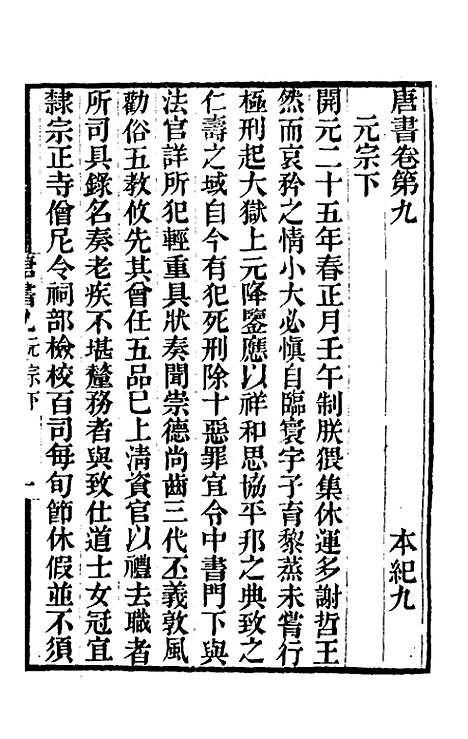 唐書卷第九　本紀九
元宗下
開元二十五年春正月壬午制朕猥集休運多謝哲王
然而哀矜之情小大必愼自臨寰宇子育黎蒸未嘗行
極刑起大獄上元降鑒應以祥和思協平邦之典致之
仁壽之域自今有犯死刑除十惡罪宜令中書門下與
法官詳所犯輕重具狀奏聞崇德尚齒三代丕義敦風
勸俗五教攸先其曾任五品已上淸資官以禮去職者
所司具錄名奏老疾不堪釐務者與致仕道士女冠宜
隸宗正寺僧尼令祠部檢校百司每旬節休假並不須
唐書九 元宗下 一